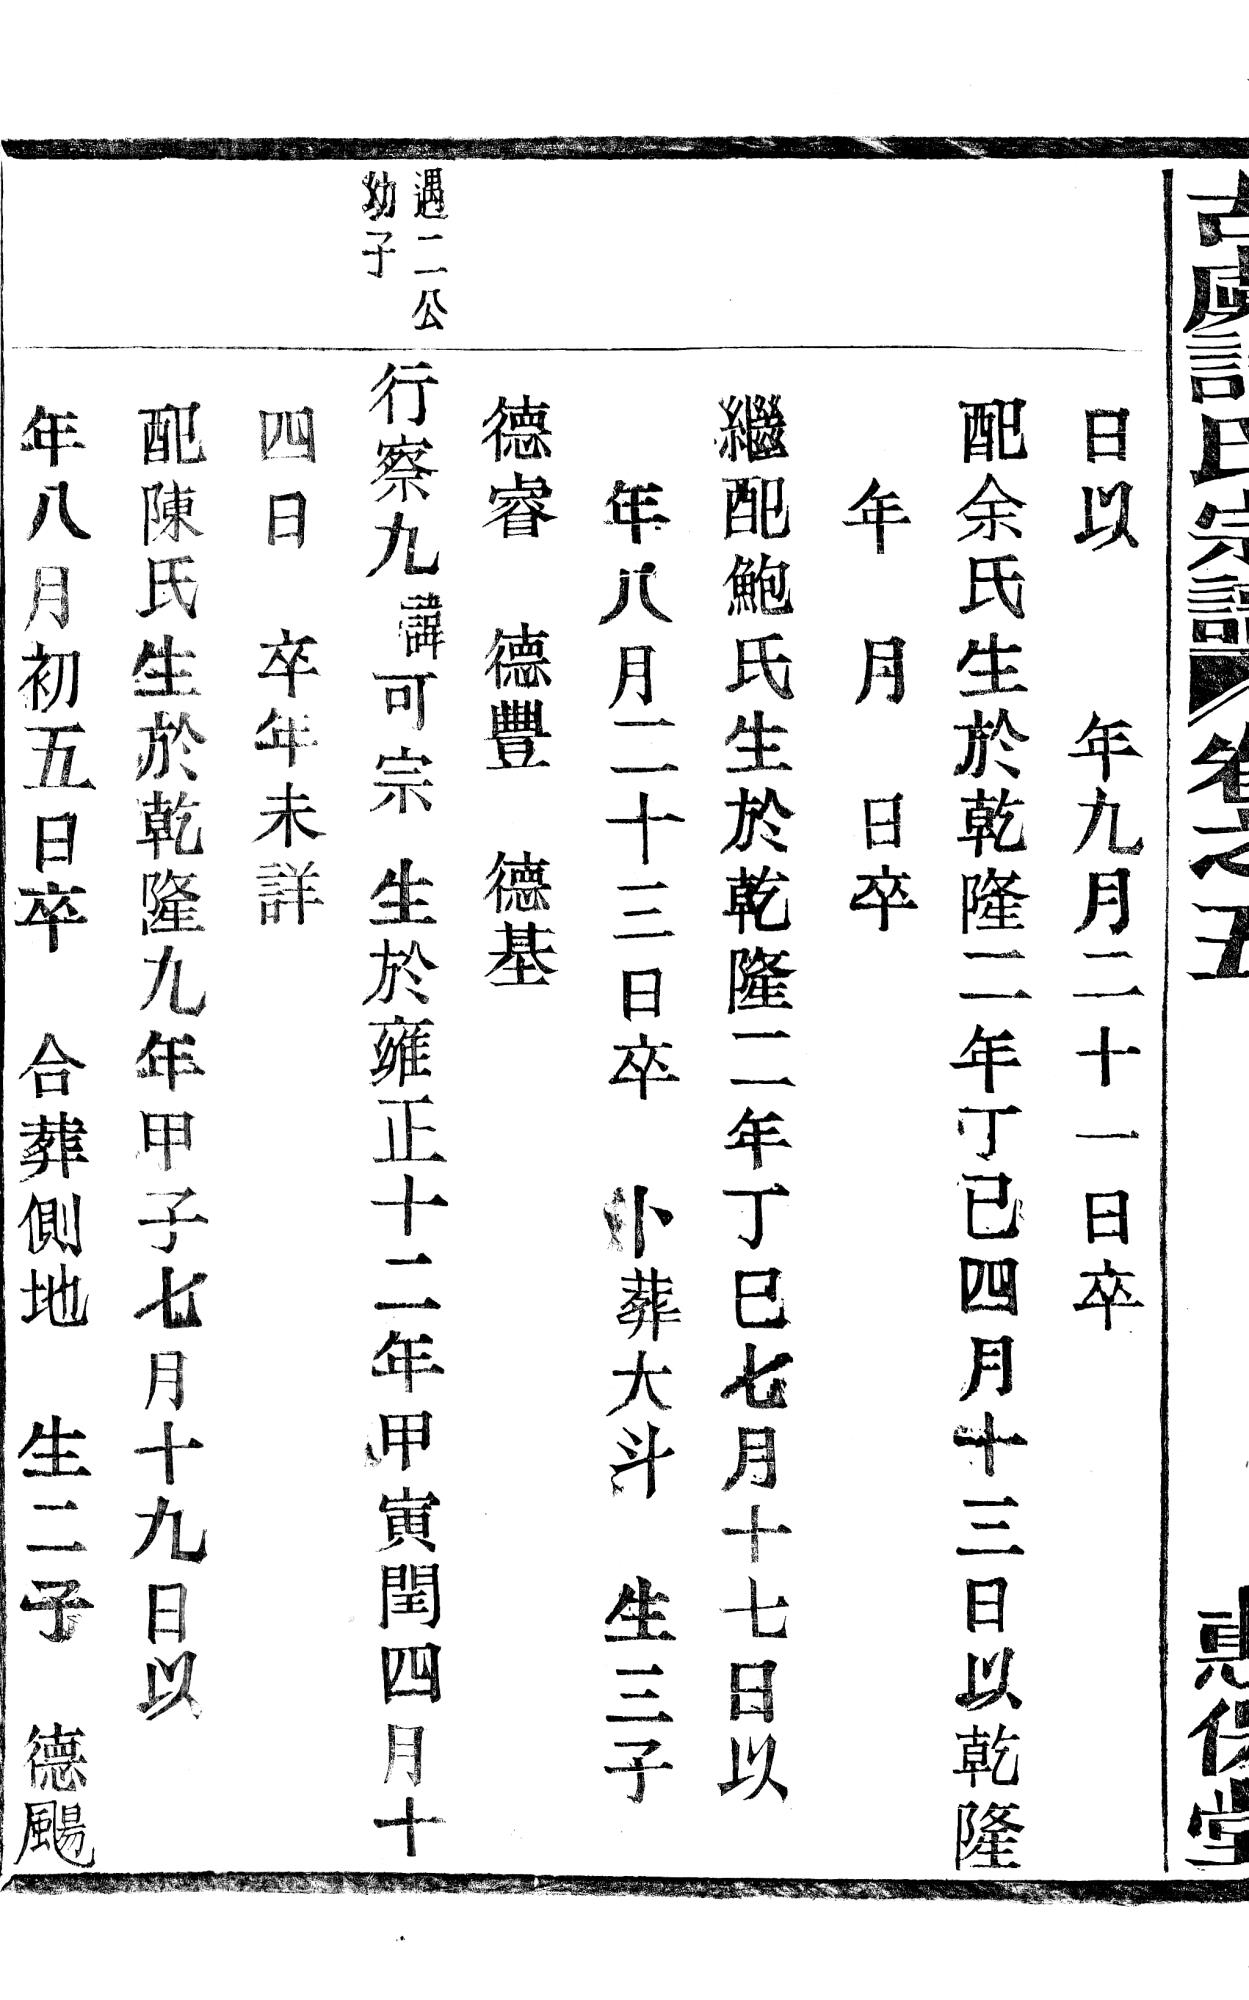 古虞許氏宗譜 卷之五 惠保堂
日以 年九月二十一日卒
配余氏生於乾隆二年丁巳四月十三日以乾隆
年 月 日卒
繼配鮑氏生於乾隆二年丁巳七月十七日以
年八月二十三日卒 卜葬大斗 生三子
德睿 德豐 德基
遇二公
幼子
行察九諱可宗 生於雍正十二年甲寅閏四月十
四日 卒年未詳
配陳氏生於乾隆九年甲子七月十九日以
年八月初五日卒 合葬側地 生二子 德颺